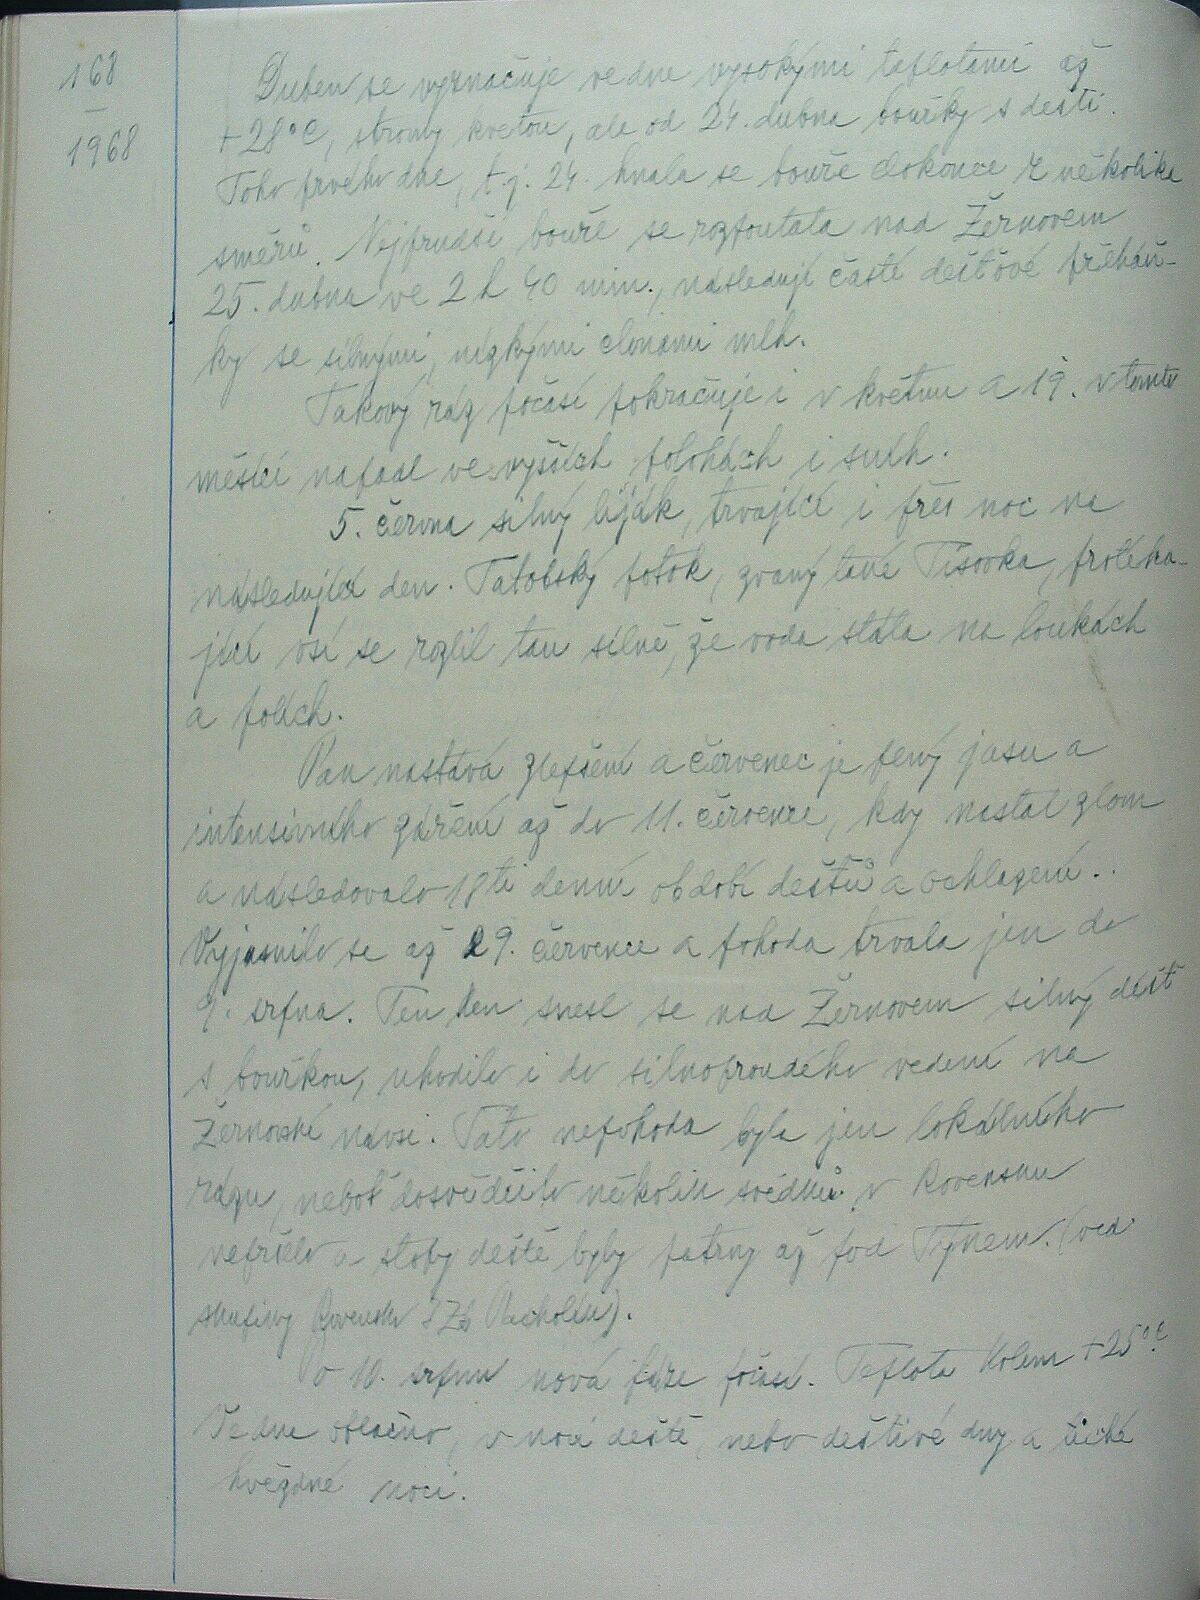 168
—
1968
Duben se vyznačuje ve dne vysokými teplotami až
+28°C, stromy kvetou, ale od 24. dubna bouřky s dešti.
Toho prvého dne, t.j. 24. hnala se bouře dokonce z několika
směrů. Nejprudší bouře se rozpoutala nad Žernovem
25. dubna ve 2 h 40 min., následují časté dešťové přeháň-
ky se silnými, nízkými clonami mlh.
Takový ráz počasí pokračuje i v květnu a 19. v tomto
měsíci napadl ve vyšších polohách i sníh.
5. června silný liják, trvající i přes noc na
následující den. Tatobský potok, zvaný také Tisovka, protéka-
jící vsí se rozlil tak silně, že voda stála na loukách
a polích.
Pak nastává zlepšení a červenec je plný jasu a
intensivního záření až do 11. července, kdy nastal zlom
a následovalo 18ti denní období dešťů a ochlazení..
Vyjasnilo se až 29. července a pohoda trvala jen do
9. srpna. Ten den snesl se nad Žernovem silný déšť
s bouřkou, uhodilo i do silnoproudého vedení na
Žernovské návsi. Tato nepohoda byla jen lokálního
rázu, neboť dosvědčilo několik svědků v Rovensku
nepršelo a stopy deště byly patrny až pod Týnem. (ved.
skupiny Rovensko SZb Pacholík).
O 10. srpnu nová fáze počasí. Teplota kolem +25°C.
Ve dne oblačno, v noci deště, nebo deštivé dny a tiché
hvězdné noci.